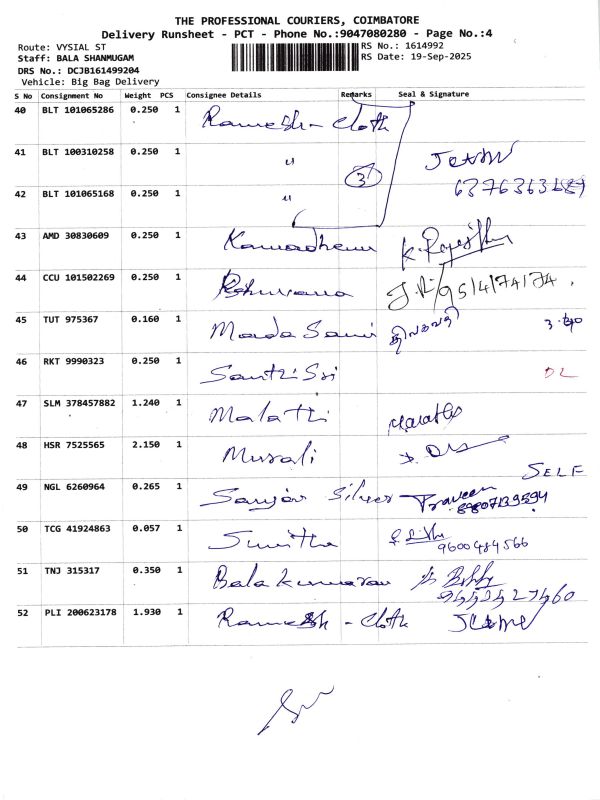 THE PROFESSIONAL COURIERS, COIMBATORE
Delivery Runsheet - PCT - Phone No.:9047080280 - Page No.:4
Route: VYSIAL ST
Staff: BALA SHANMUGAM
DRS No.: DCJB161499204
Vehicle: Big Bag Delivery
RS No.: 1614992
RS Date: 19-Sep-2025
S No Consignment No Weight PCS Consignee Details Remarks Seal & Signature
40 BLT 101065286 0.250 1 Ramesh - cloth
41 BLT 100310258 0.250 1 " 3
42 BLT 101065168 0.250 1 "
43 AMD 30830609 0.250 1 Kamadhenu
44 CCU 101502269 0.250 1
45 TUT 975367 0.160 1 Mada Sami
46 RKT 9990323 0.250 1 Santhi Sri DL
47 SLM 378457882 1.240 1 Malathi
48 HSR 7525565 2.150 1 Murali
SELF
49 NGL 6260964 0.265 1 Sanjay Silver Praveen
50 TCG 41924863 0.057 1 Sunitha
9600484566
51 TNJ 315317 0.350 1 Balakumaran
52 PLI 200623178 1.930 1 Ramesh - cloth